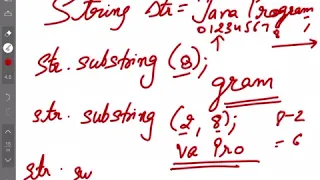 String str = Java Program;
012345678
str. substring (8);
gram
str. substring (2, 8); 8-2
va Pro = 6
str. su